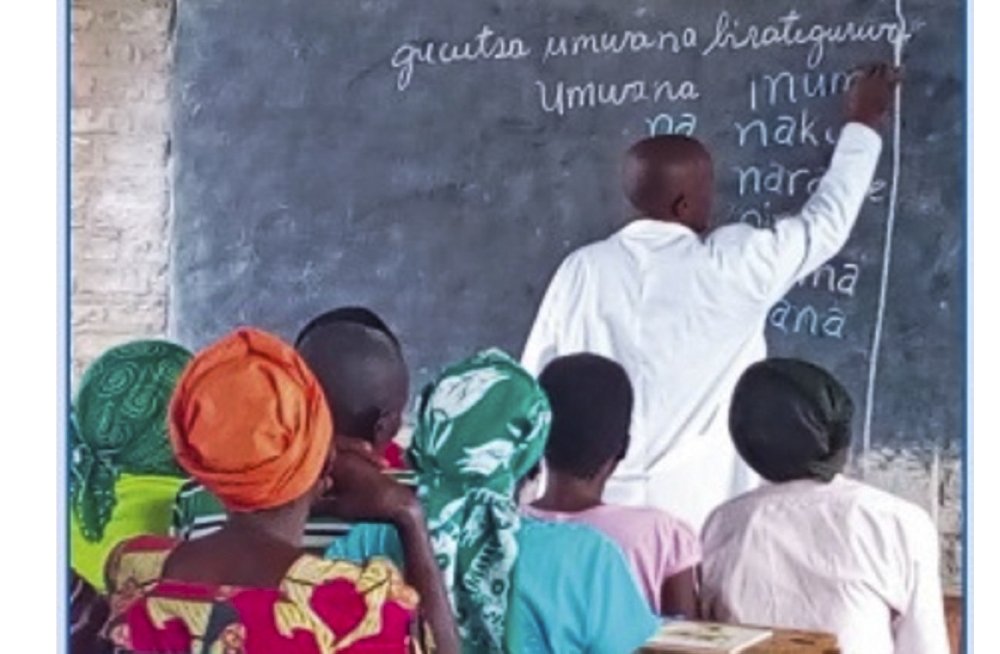 gucutsa umwana birategurwa
Umwana inum
na naku
nara e
ma
ana